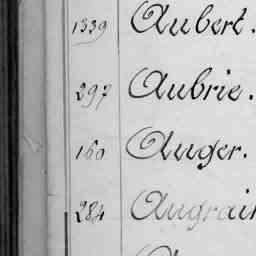 1339 Aubert.
297 Aubrie.
160 Auger.
284 Augrain